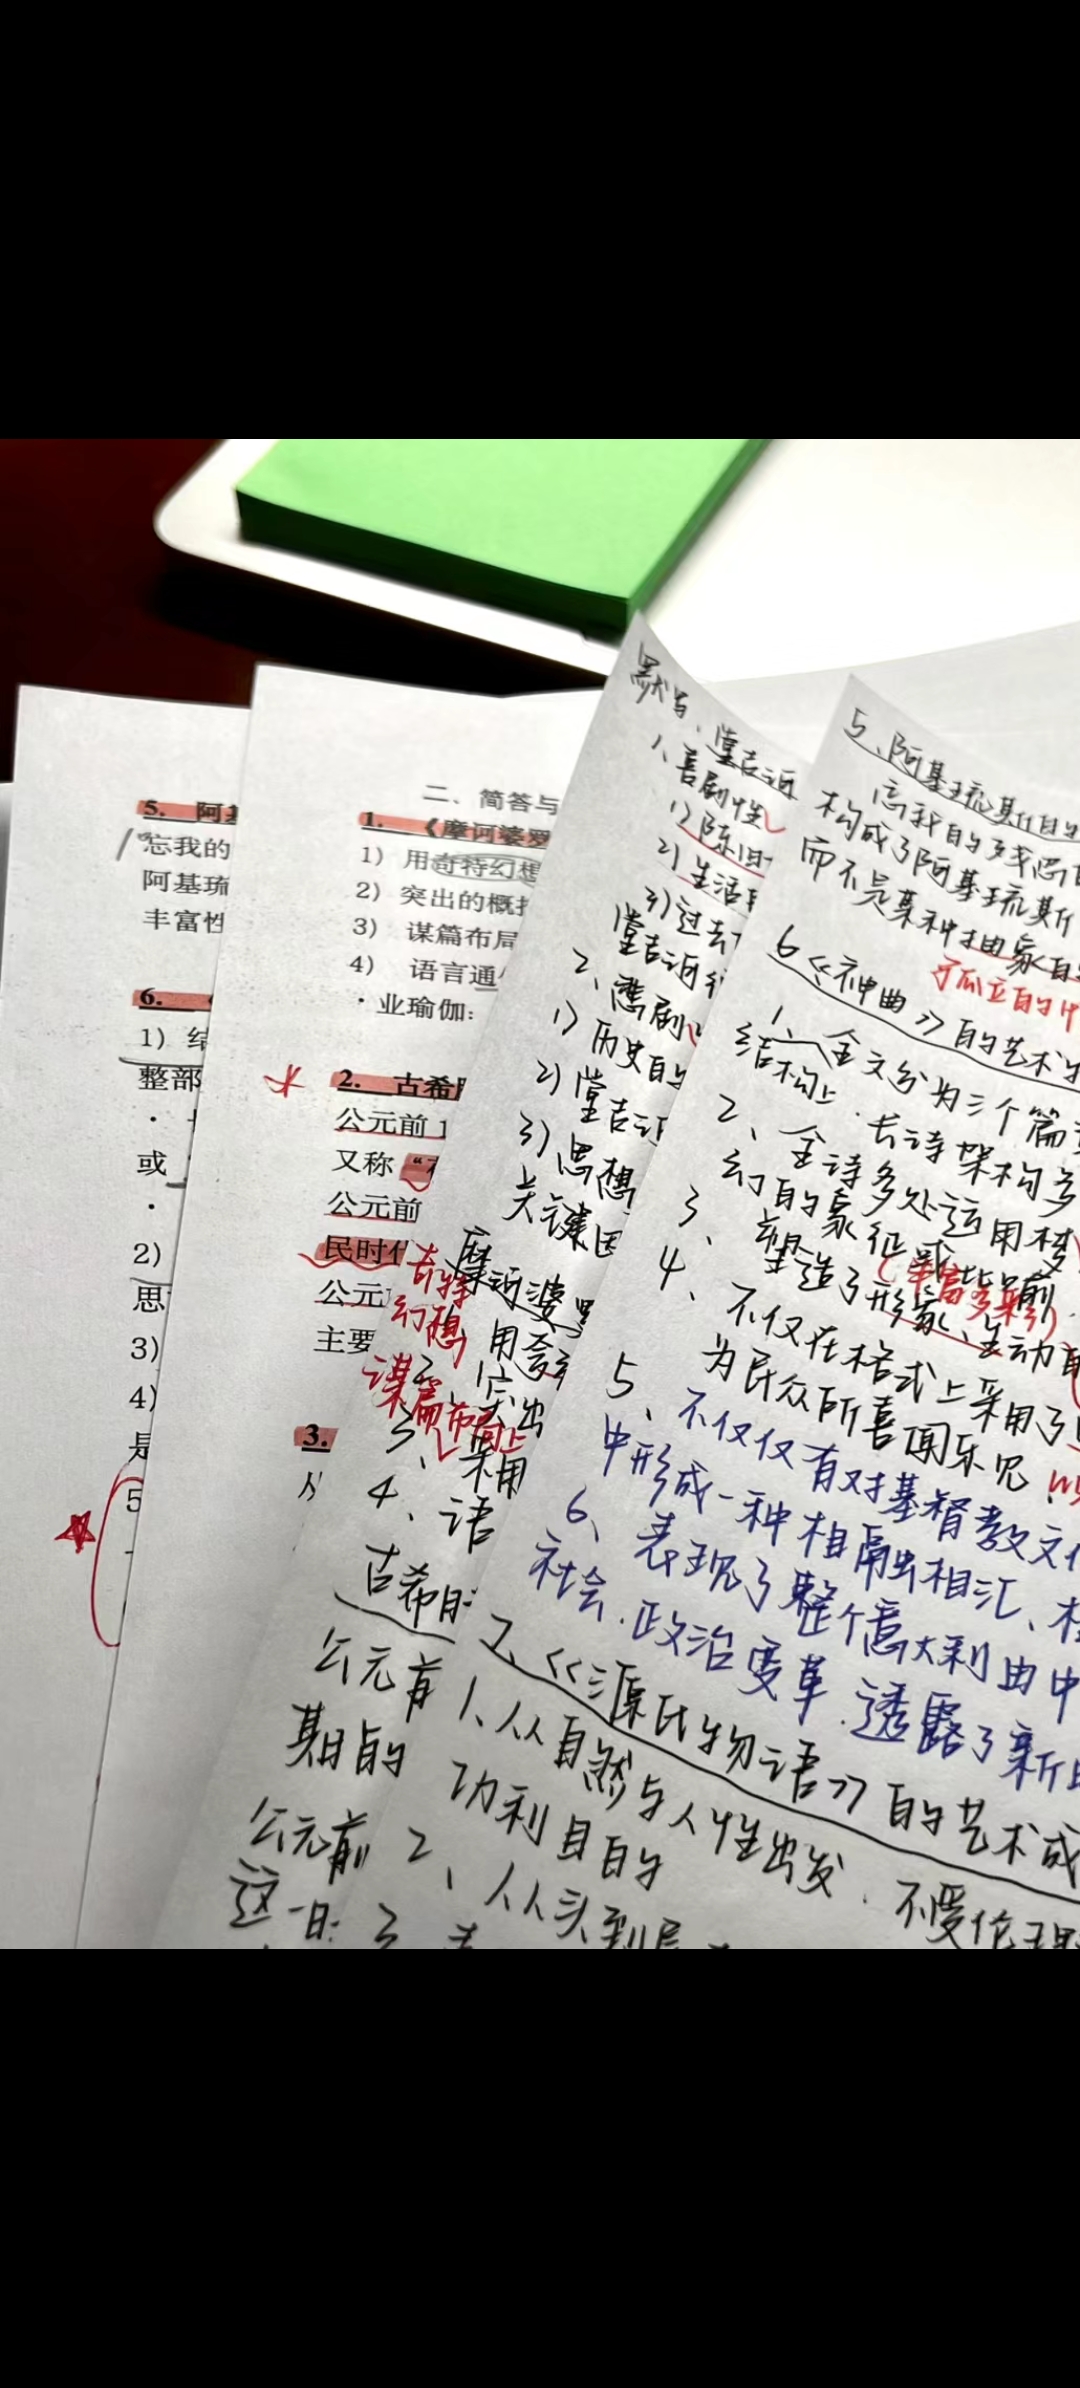 5. 阿基
忘我的
阿基琉
丰富性
6.
1) 结
整部
或
2)
思
3)
4)
是
5
二、简答与
1. 《摩诃婆罗
1) 用奇特幻想
2) 突出的概括
3) 谋篇布局
4) 语言通俗
·业瑜伽:
2. 古希腊
公元前1
又称“
公元前
民时代
公元
主要
3.
从
默写、堂吉诃
1、喜剧性
1) 陈旧
2) 生活
3) 过去
堂吉诃德
2、悲剧
1) 历史的
2) 堂吉诃
3) 思想
关键因
摩诃婆罗
奇特
幻想
用夸
2、突出
谋篇布局上
3、采用
4、语
古希腊
公元前
期的
公元前
这一时
5、阿基琉斯的
高我的
构成了阿基琉斯
而不是某种抽象的
孤立的
6《神曲》的艺术
1、全文分为三个篇
结构上.长诗架构多
2、全诗多处运用梦
幻的象征
(丰富多彩)
3、塑造了形象、生动的
4、不仅在格式上采用了
为民众所喜闻乐见.
5、不仅仅有对基督教文化
中形成一种相融相汇、
6、表现了整个意大利由中
社会.政治变革.透露了新时
7、《源氏物语》的艺术成
1、从自然与人性出发.不受伦理
功利目的
2、从头到尾
3、